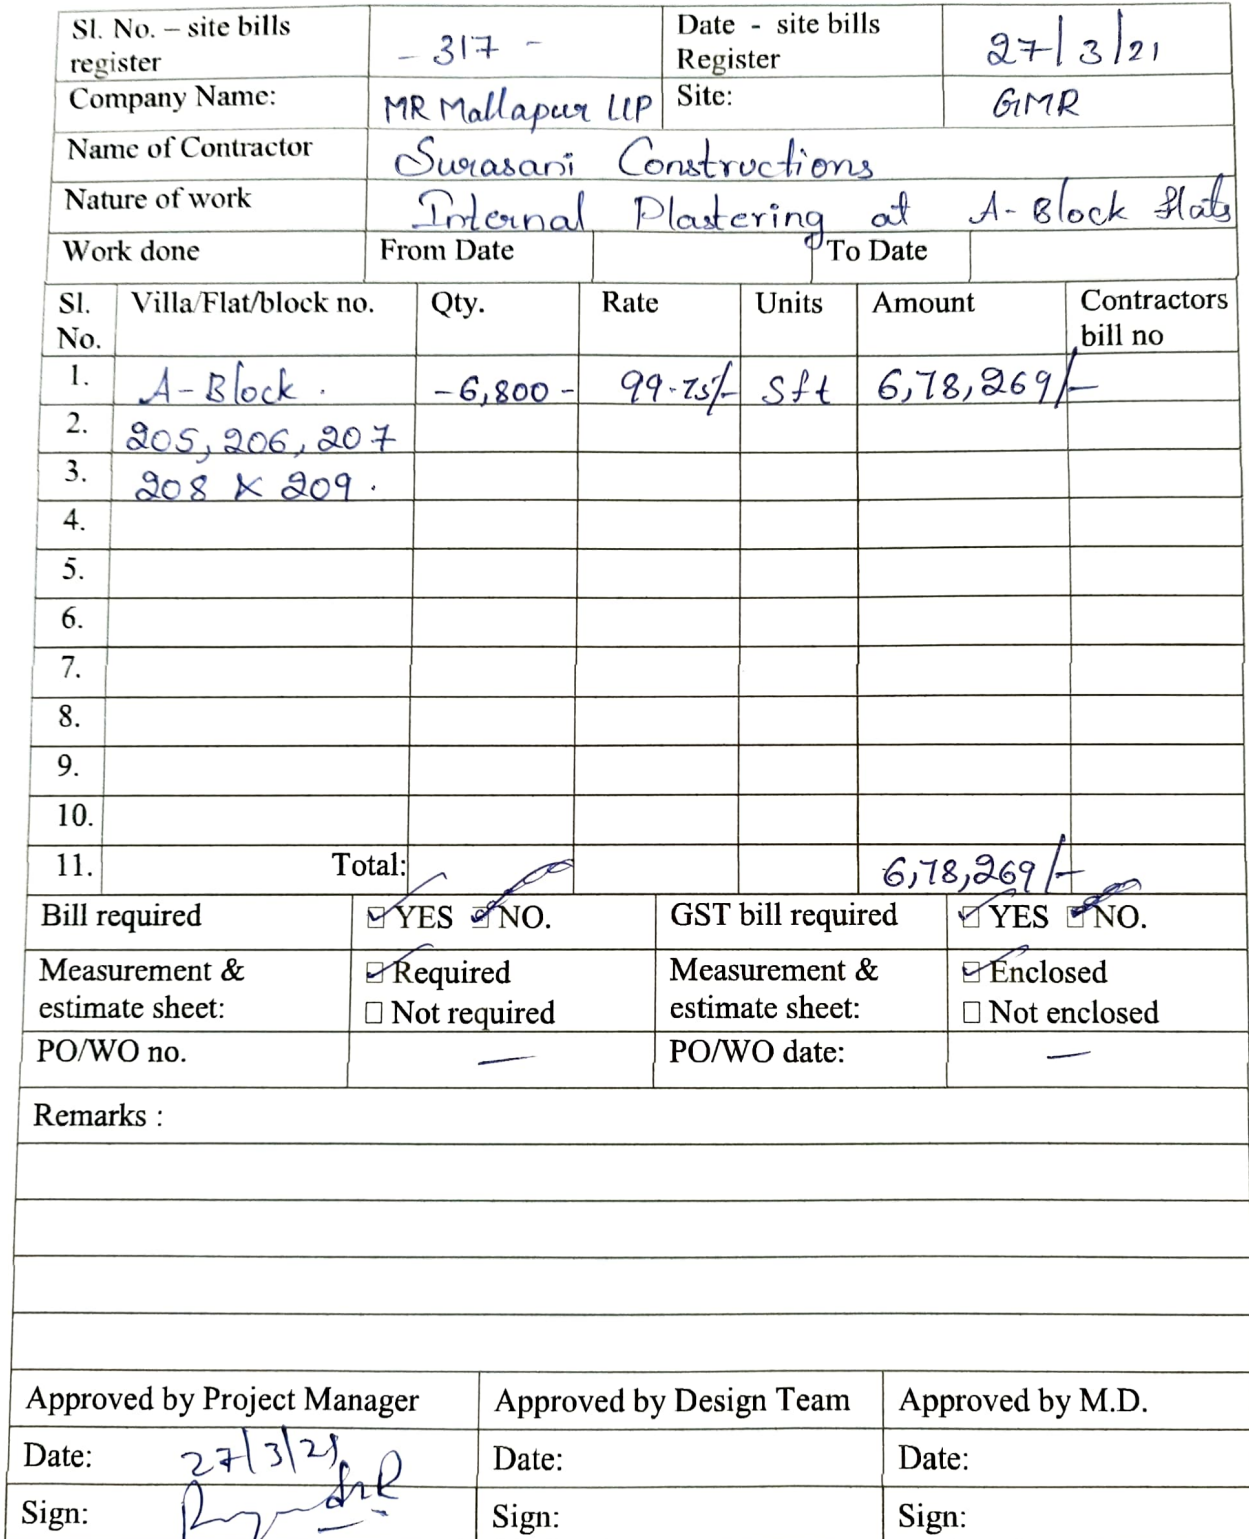 Sl. No. – site bills register - 317 - Date - site bills Register 27/3/21
Company Name: MR Mallapur LLP Site: GMR
Name of Contractor Surasani Constructions
Nature of work Internal Plastering at A-Block flats
Work done From Date To Date
Sl. No. Villa/Flat/block no. Qty. Rate Units Amount Contractors bill no
1. A-Block. -6,800- 99.75/- Sft 6,78,269/-
2. 205, 206, 207
3. 208 & 209.
4.
5.
6.
7.
8.
9.
10.
11. Total: 6,78,269/-
Bill required ☑ YES ☑ NO. GST bill required ☑ YES ☑ NO.
Measurement & estimate sheet: ☑ Required Measurement & estimate sheet: ☑ Enclosed
☐ Not required ☐ Not enclosed
PO/WO no. — PO/WO date: —
Remarks :
Approved by Project Manager Approved by Design Team Approved by M.D.
Date: 27/3/21 Date: Date:
Sign: Sign: Sign: